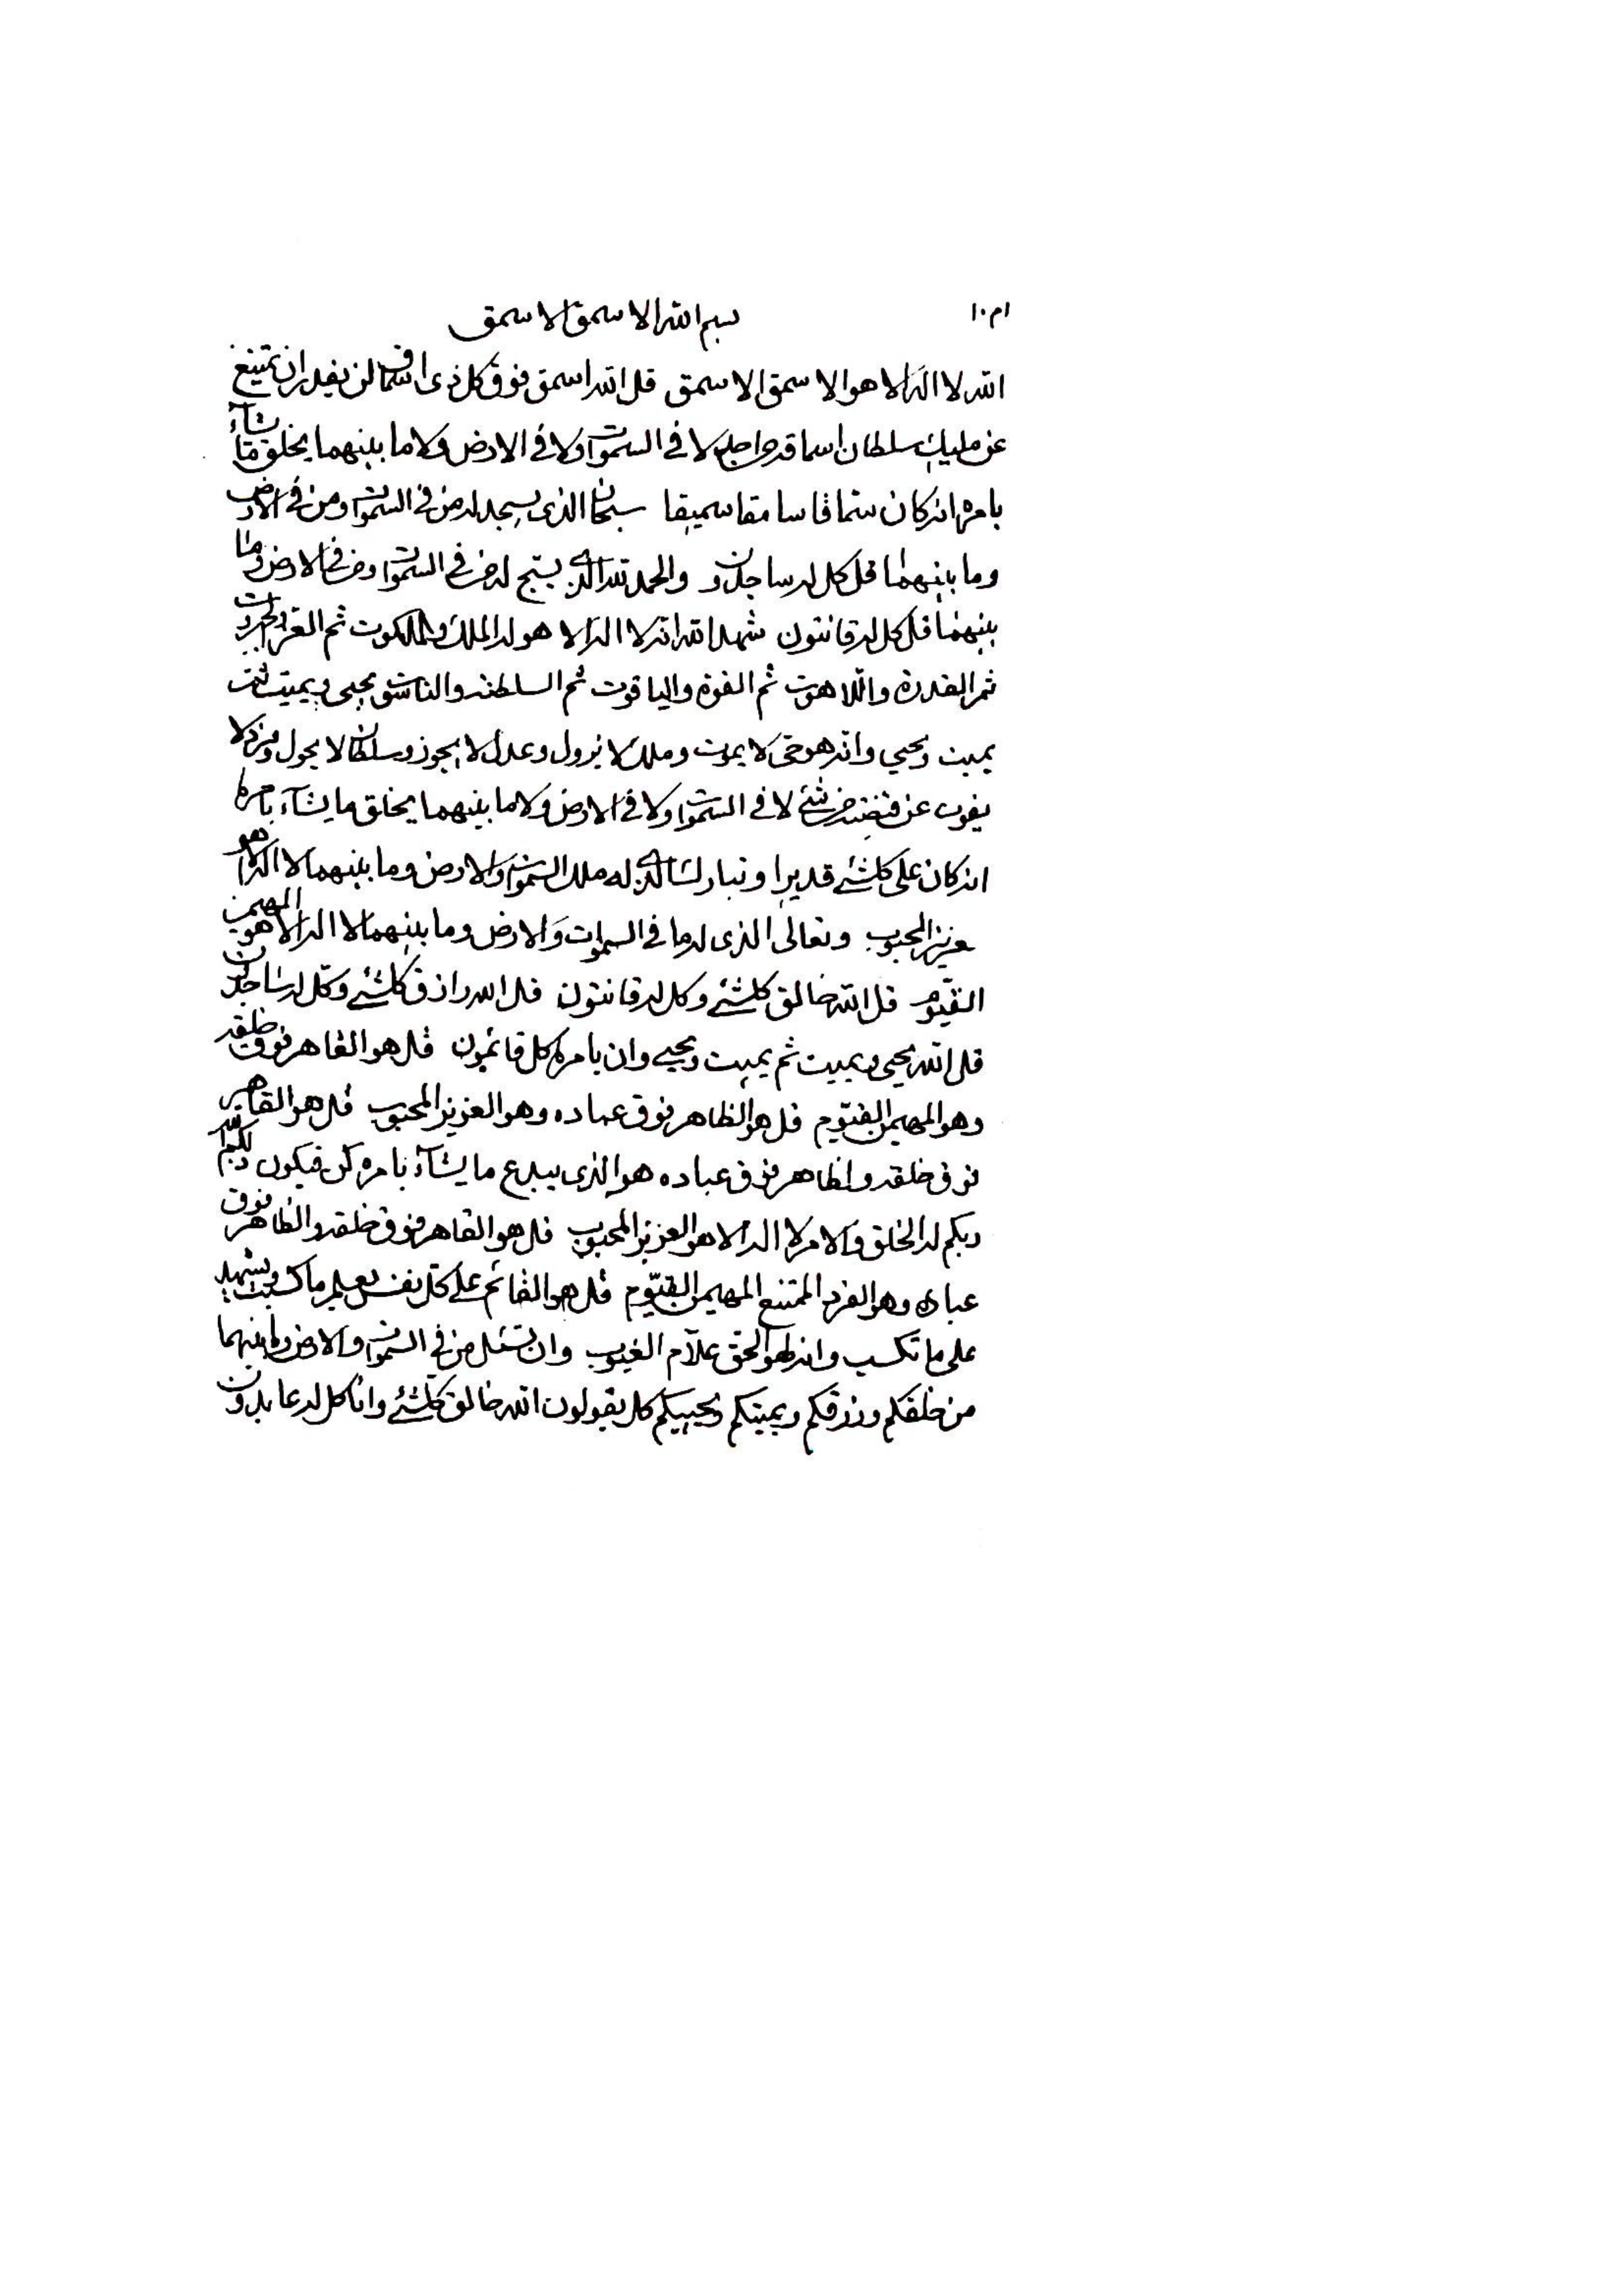 ا م ١٠
بسم الله الاسمق الاسمق
الله لا اله الا هو الاسمق الاسمق قل الله اسمق فوق كل ذى اسماق لن يقدر ان يمتنع
عن مليك سلطان اسماقه من احد لا فى السموات ولا فى الارض ولا ما بينهما يخلق ما يشآء
بامره انه كان سماقا سامقا سميقا سبحان الذى يسجد له من فى السموات ومن فى الارض
وما بينهما قل كل له ساجدون والحمد لله الذى يسبح له من فى السموات ومن فى الارض وما
بينهما قل كل له قانتون شهد الله انه لا اله الا هو له الملك والملكوت ثم العز والجبروت
ثم القدرة واللاهوت ثم القوة والياقوت ثم السلطنه والناسوت يحيى ويميت ثم
يميت ويحيي وانه هو حى لا يموت وملك لا يزول وعدل لا يجوز وسلطان لا يحول وفرد لا
يفوت عن قبضته من شئ لا فى السموات ولا فى الارض ولا ما بينهما يخلق ما يشآء بامره
انه كان على كلشئ قديرا وتبارك الذى له ملك السموات والارض وما بينهما لا اله الا هو
عزيز المحبوب وتعالى الذى له ما فى السموات والارض وما بينهما لا اله الا هو المهيمن
القيّوم قل الله خالق كلشئ وكل له قانتون قل الله رازق كلشئ وكل له ساجدون
قل الله يحيى ويميت ثم يميت ويحيي وان بامره كل قائمون قل هو القاهر فوق خلقه
وهو المهيمن القيّوم قل هو الظاهر فوق عباده وهو العزيز المحبوب قل هو القاهر
فوق خلقه والظاهر فوق عباده هو الذى يبدع ما يشآء بامره كن فيكون ذلكم الله
ربكم له الخلق والامر لا اله الا هو العزيز المحبوب قل هو القاهر فوق خلقه والظاهر فوق
عباده وهو الفرد الممتنع المهيمن القيّوم قل هو القائم على كل نفس يعلم ما كسبت ويشهد
على ما تكسب وانه لهو الحق علّام الغيوب وان تسئل من فى السموات والارض وما بينهما
من خلقكم ورزقكم ويميتكم ويحييكم كل يقولون الله خالق كلشئ وانا كل له عابدون